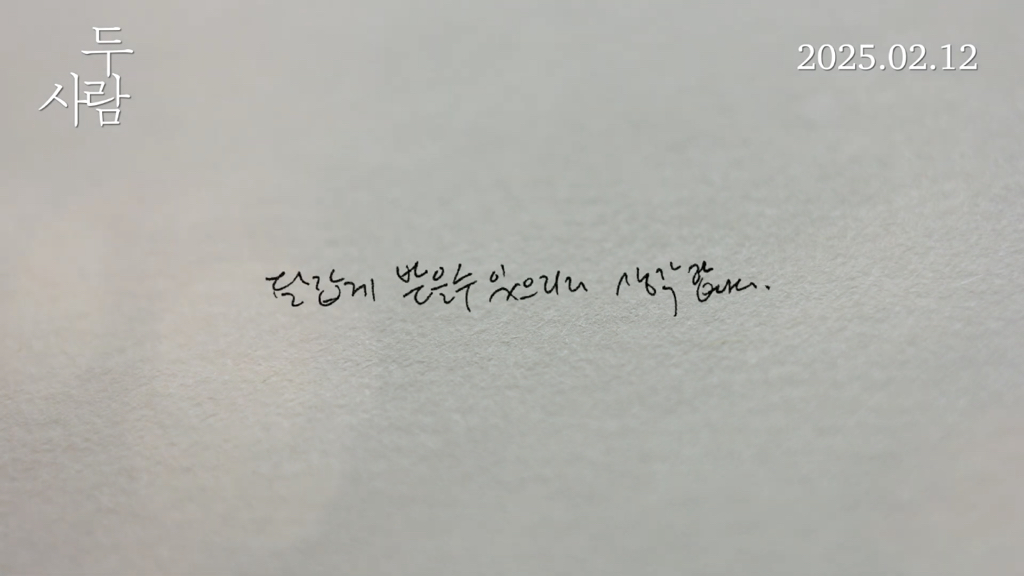 두
사람
2025.02.12
달갑게 받을수 있으리라 생각합니다.